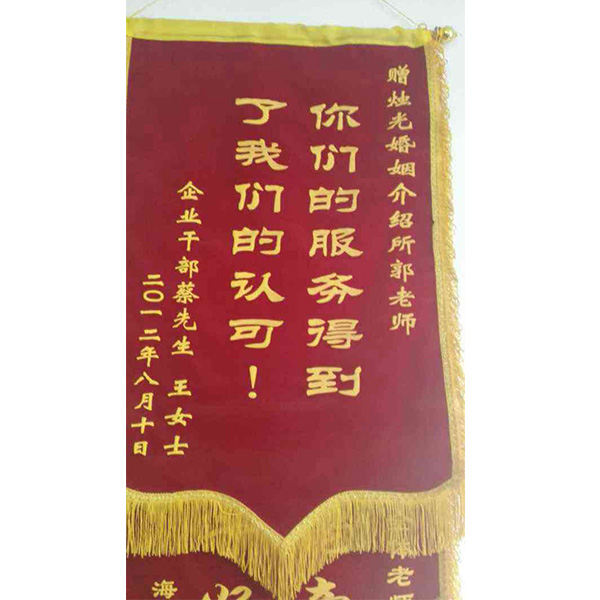 赠烛光婚姻介绍所郭老师
你们的服务得到
了我们的认可！
企业干部蔡先生 王女士
二〇一二年八月十日
老师
海